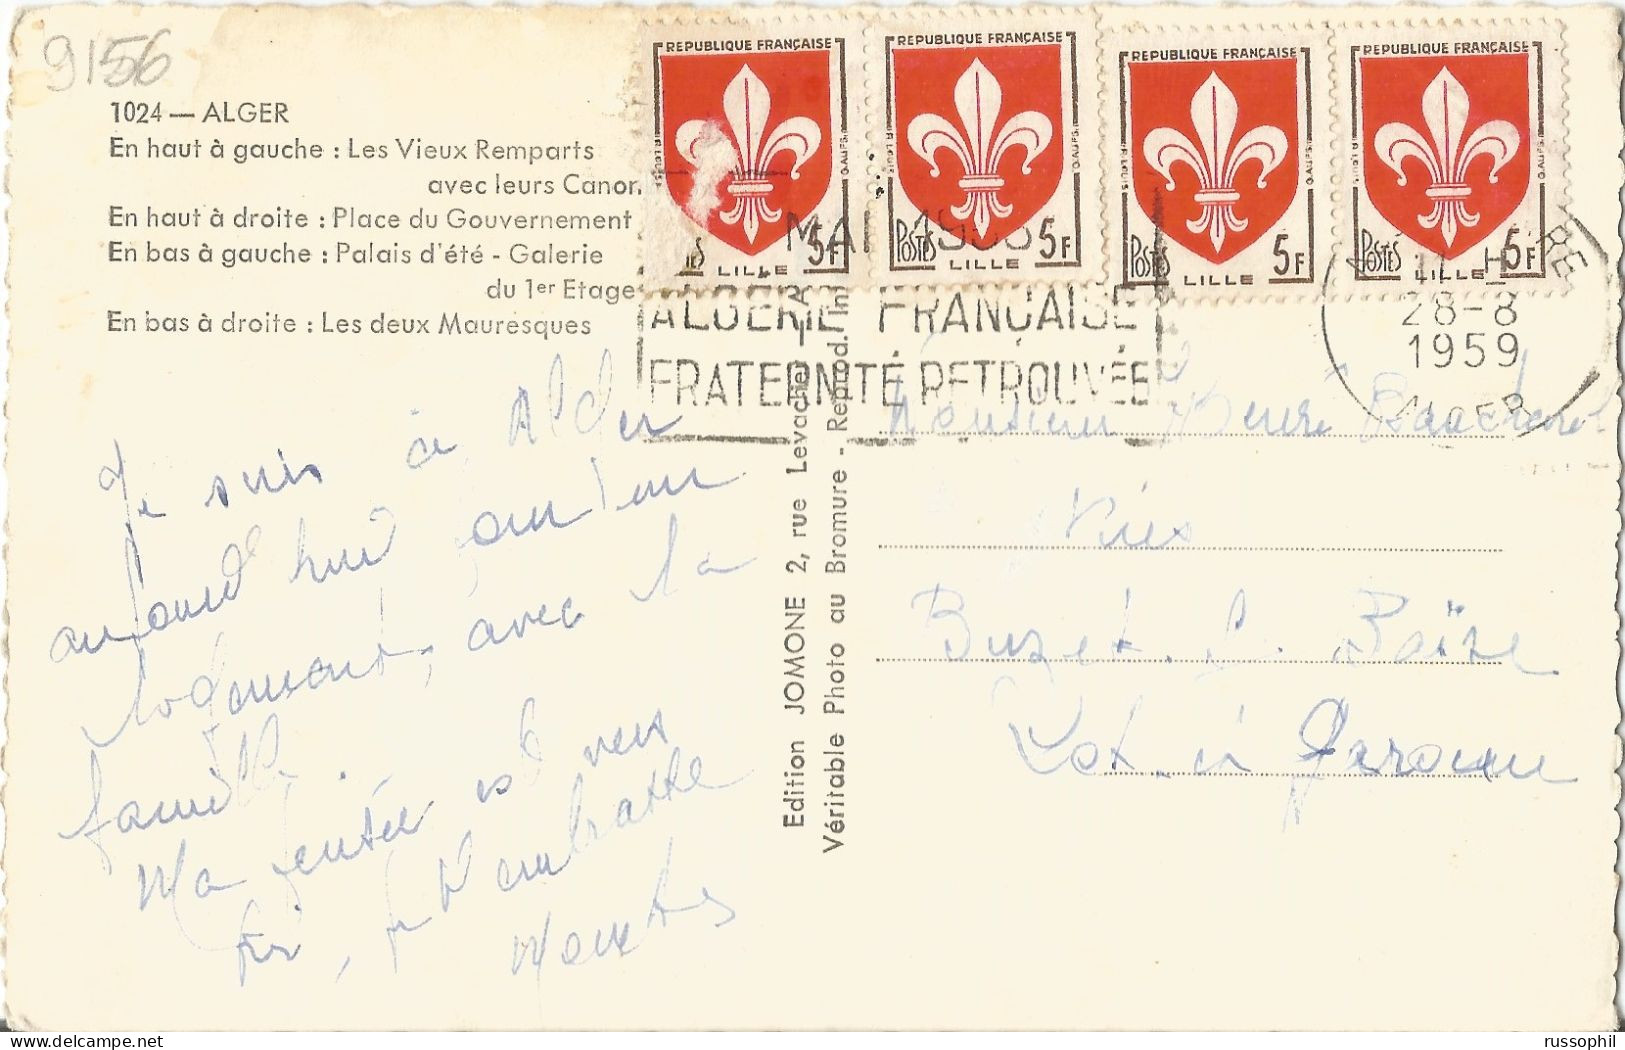 9156
1024 — ALGER
En haut à gauche : Les Vieux Remparts
avec leurs Canon
En haut à droite : Place du Gouvernement
En bas à gauche : Palais d'été - Galerie
du 1er Etage
En bas à droite : Les deux Mauresques
REPUBLIQUE FRANÇAISE
5F
LILLE
REPUBLIQUE FRANÇAISE
POSTES
5F
LILLE
REPUBLIQUE FRANÇAISE
POSTES
5F
LILLE
REPUBLIQUE FRANÇAISE
POSTES
5F
LILLE
MAI 1958
ALGERIE FRANÇAISE
FRATERNITÉ RETROUVÉE
28-8
1959
ALGER
Edition JOMONE 2, rue Levacher
Véritable Photo au Bromure - Reprod. Int
Je suis à Alger
aujourd'hui
logement, avec la
famille.
Ma rentrée est vers
Je t'embrasse
Monsieur
Buzet. S. Baïse
Lot. et Garonne
russophil